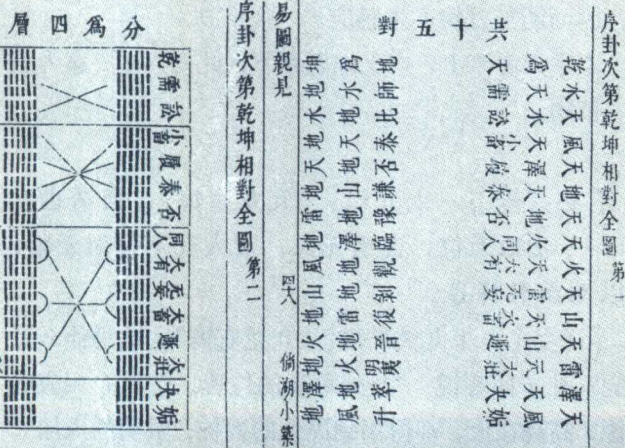 序卦次第乾坤相對全圖 第一
乾水天風天地天天火天山天雷澤天
為天水天澤天地火天雷天山天天風
天需訟小畜履泰否同人大有无妄大畜遯大壯夬姤
共十五對
地師比泰否謙豫臨觀剝復晉明夷萃升
為水地天地山地地地雷地火地風
坤地水地天地雷地風山地火地澤地
易圖親見 倘湖小築
序卦次第乾坤相對全圖 第二
分為四層
乾需訟小畜履泰否同人大有无妄大畜遯大壯夬姤